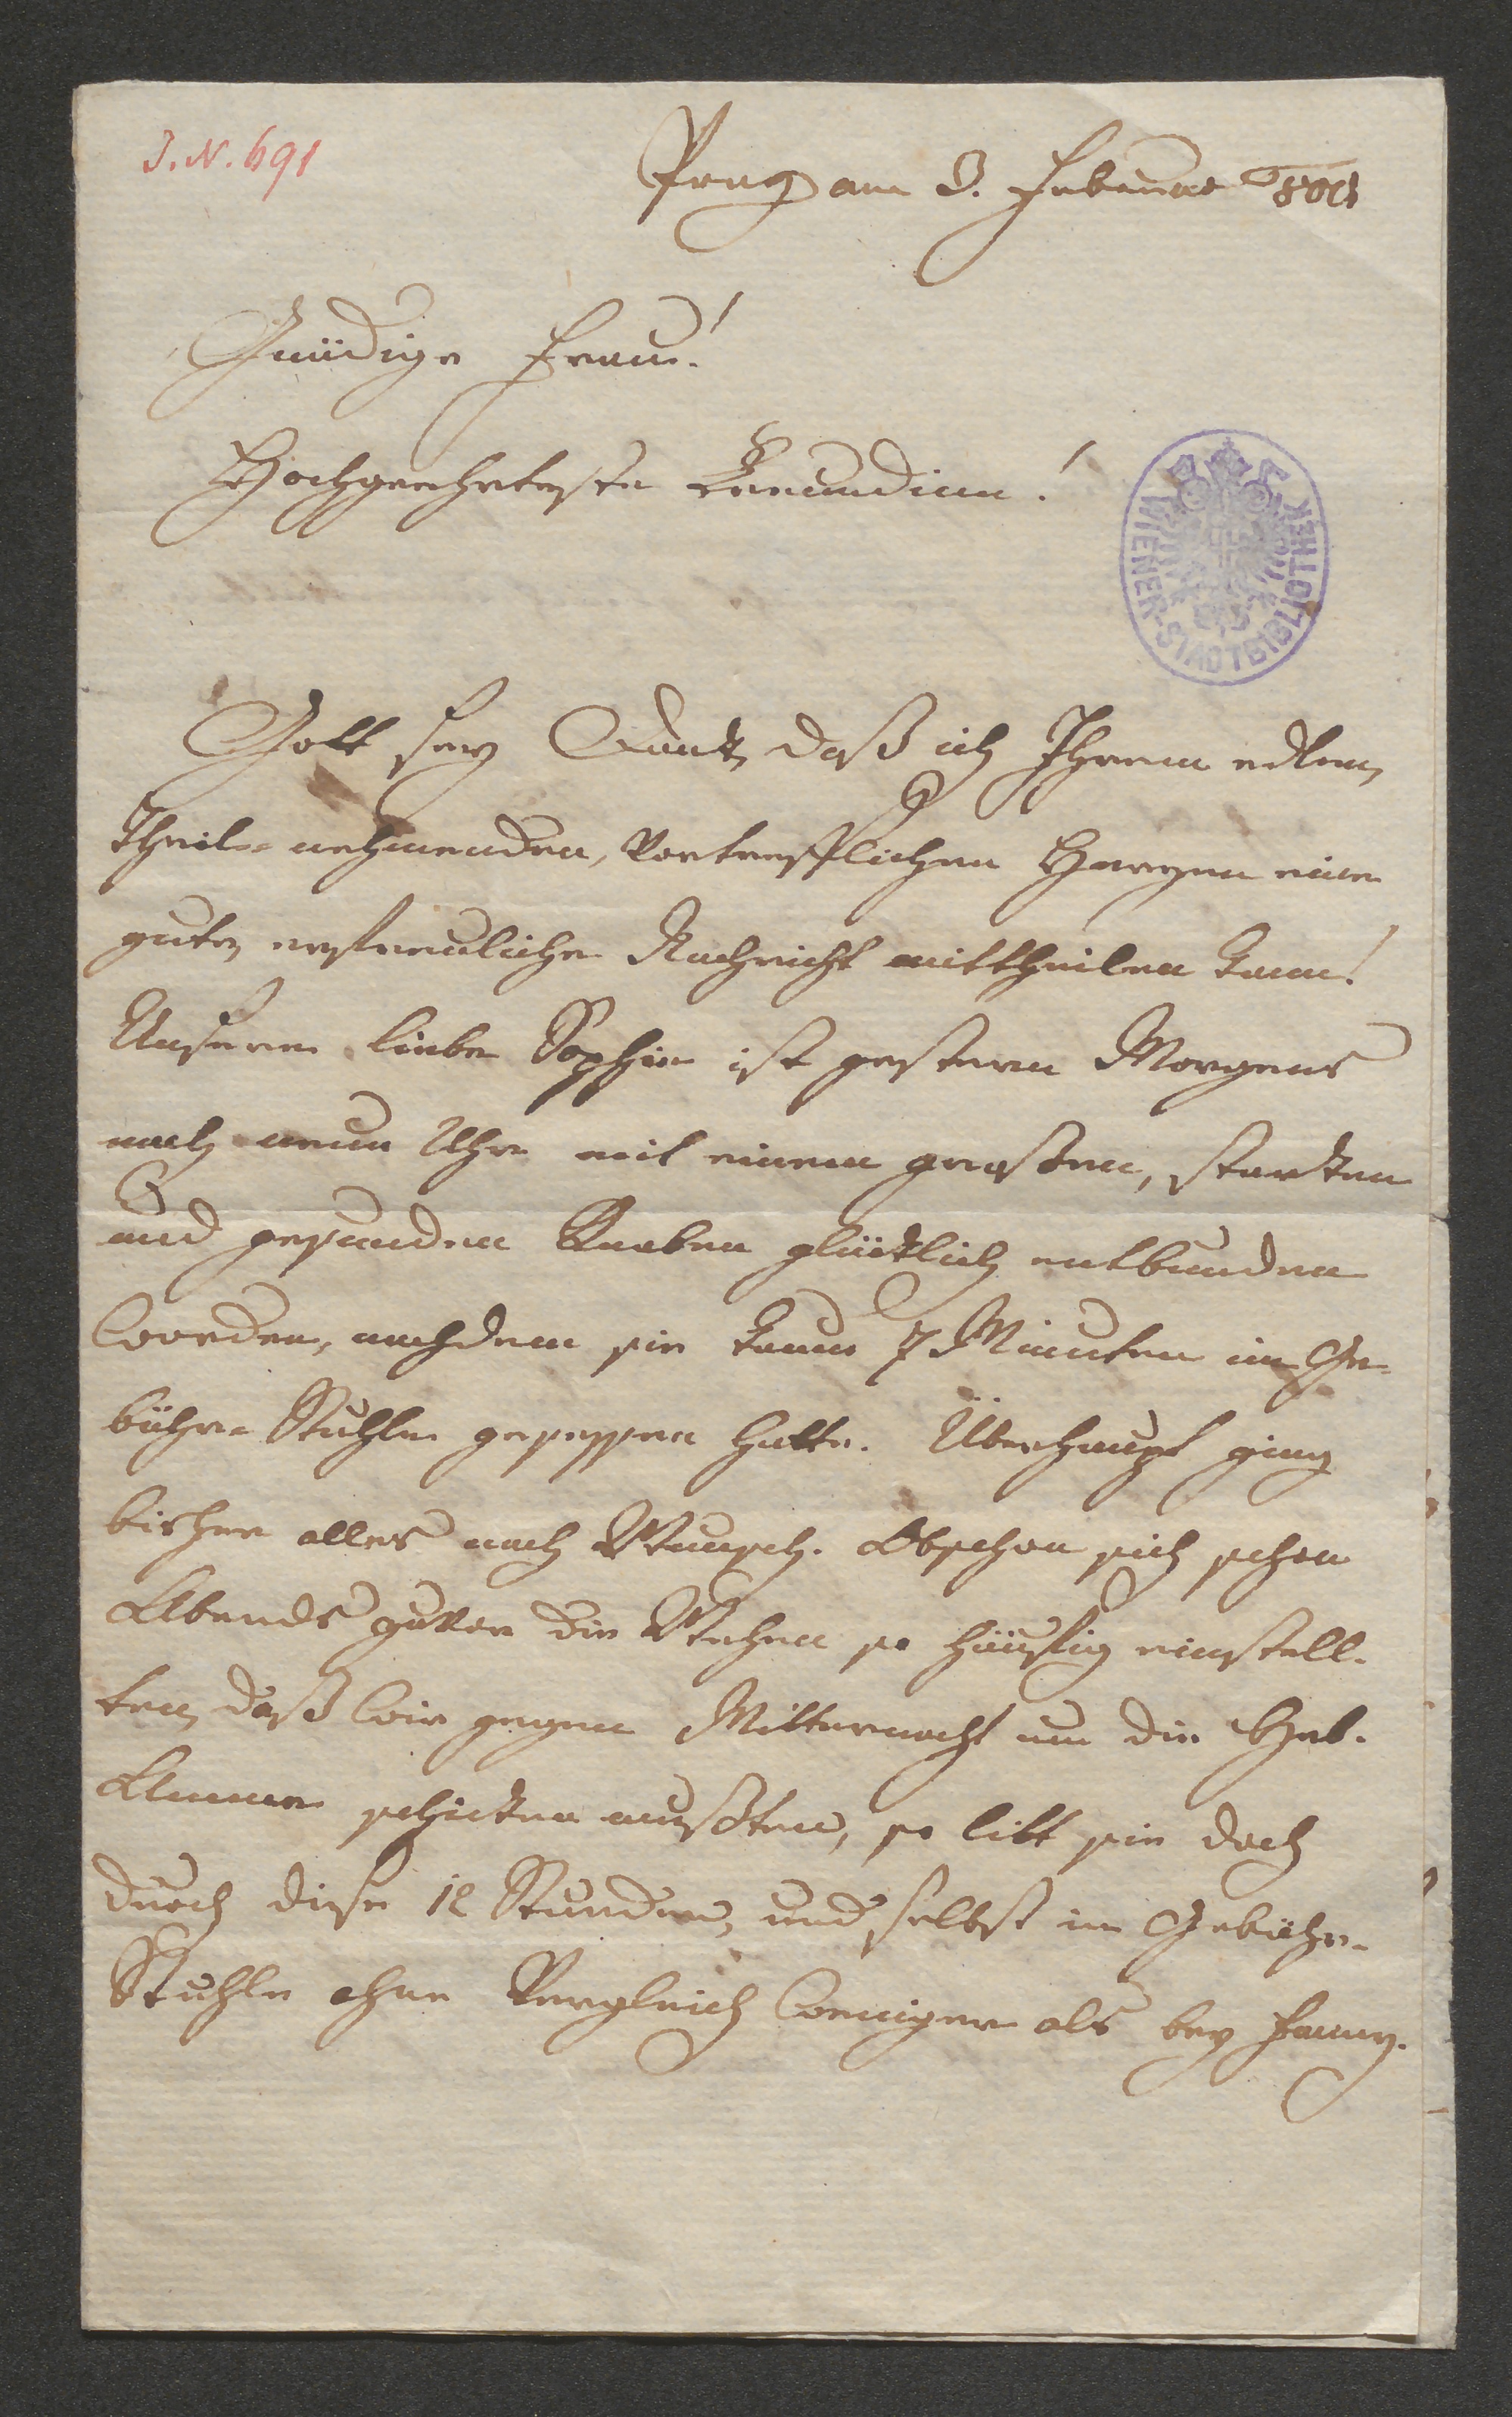 J. N. 691
Prag am 3. Februar
Gnädige Frau!
Hochgeehrteste Freundinn!
WIENER-STADTBIBLIOTHEK
Gott sey Dank, daß ich Ihrem edlen,
Theil-nehmenden, vortrefflichen Herzen eine
gute, erfreuliche Nachricht mittheilen kann!
Unsere liebe Sophie ist gestern Morgens
nach neun Uhr mit einem großen, starken
und gesunden Knaben glücklich entbunden
worden, nachdem sie kaum 7 Minuten im Ge-
bähr-Stuhle gesessen hatte. Überhaupt ging
bisher alles nach Wunsch. Obschon sich schon
Abends zuvor die Wehen so häufig einstell-
ten, daß wir gegen Mitternacht um die Heb-
Amme schicken mußten, so litt sie doch
durch diese 12 Stunden, und selbst im Gebähr-
Stuhle ohne Vergleich weniger als bey Fanny.